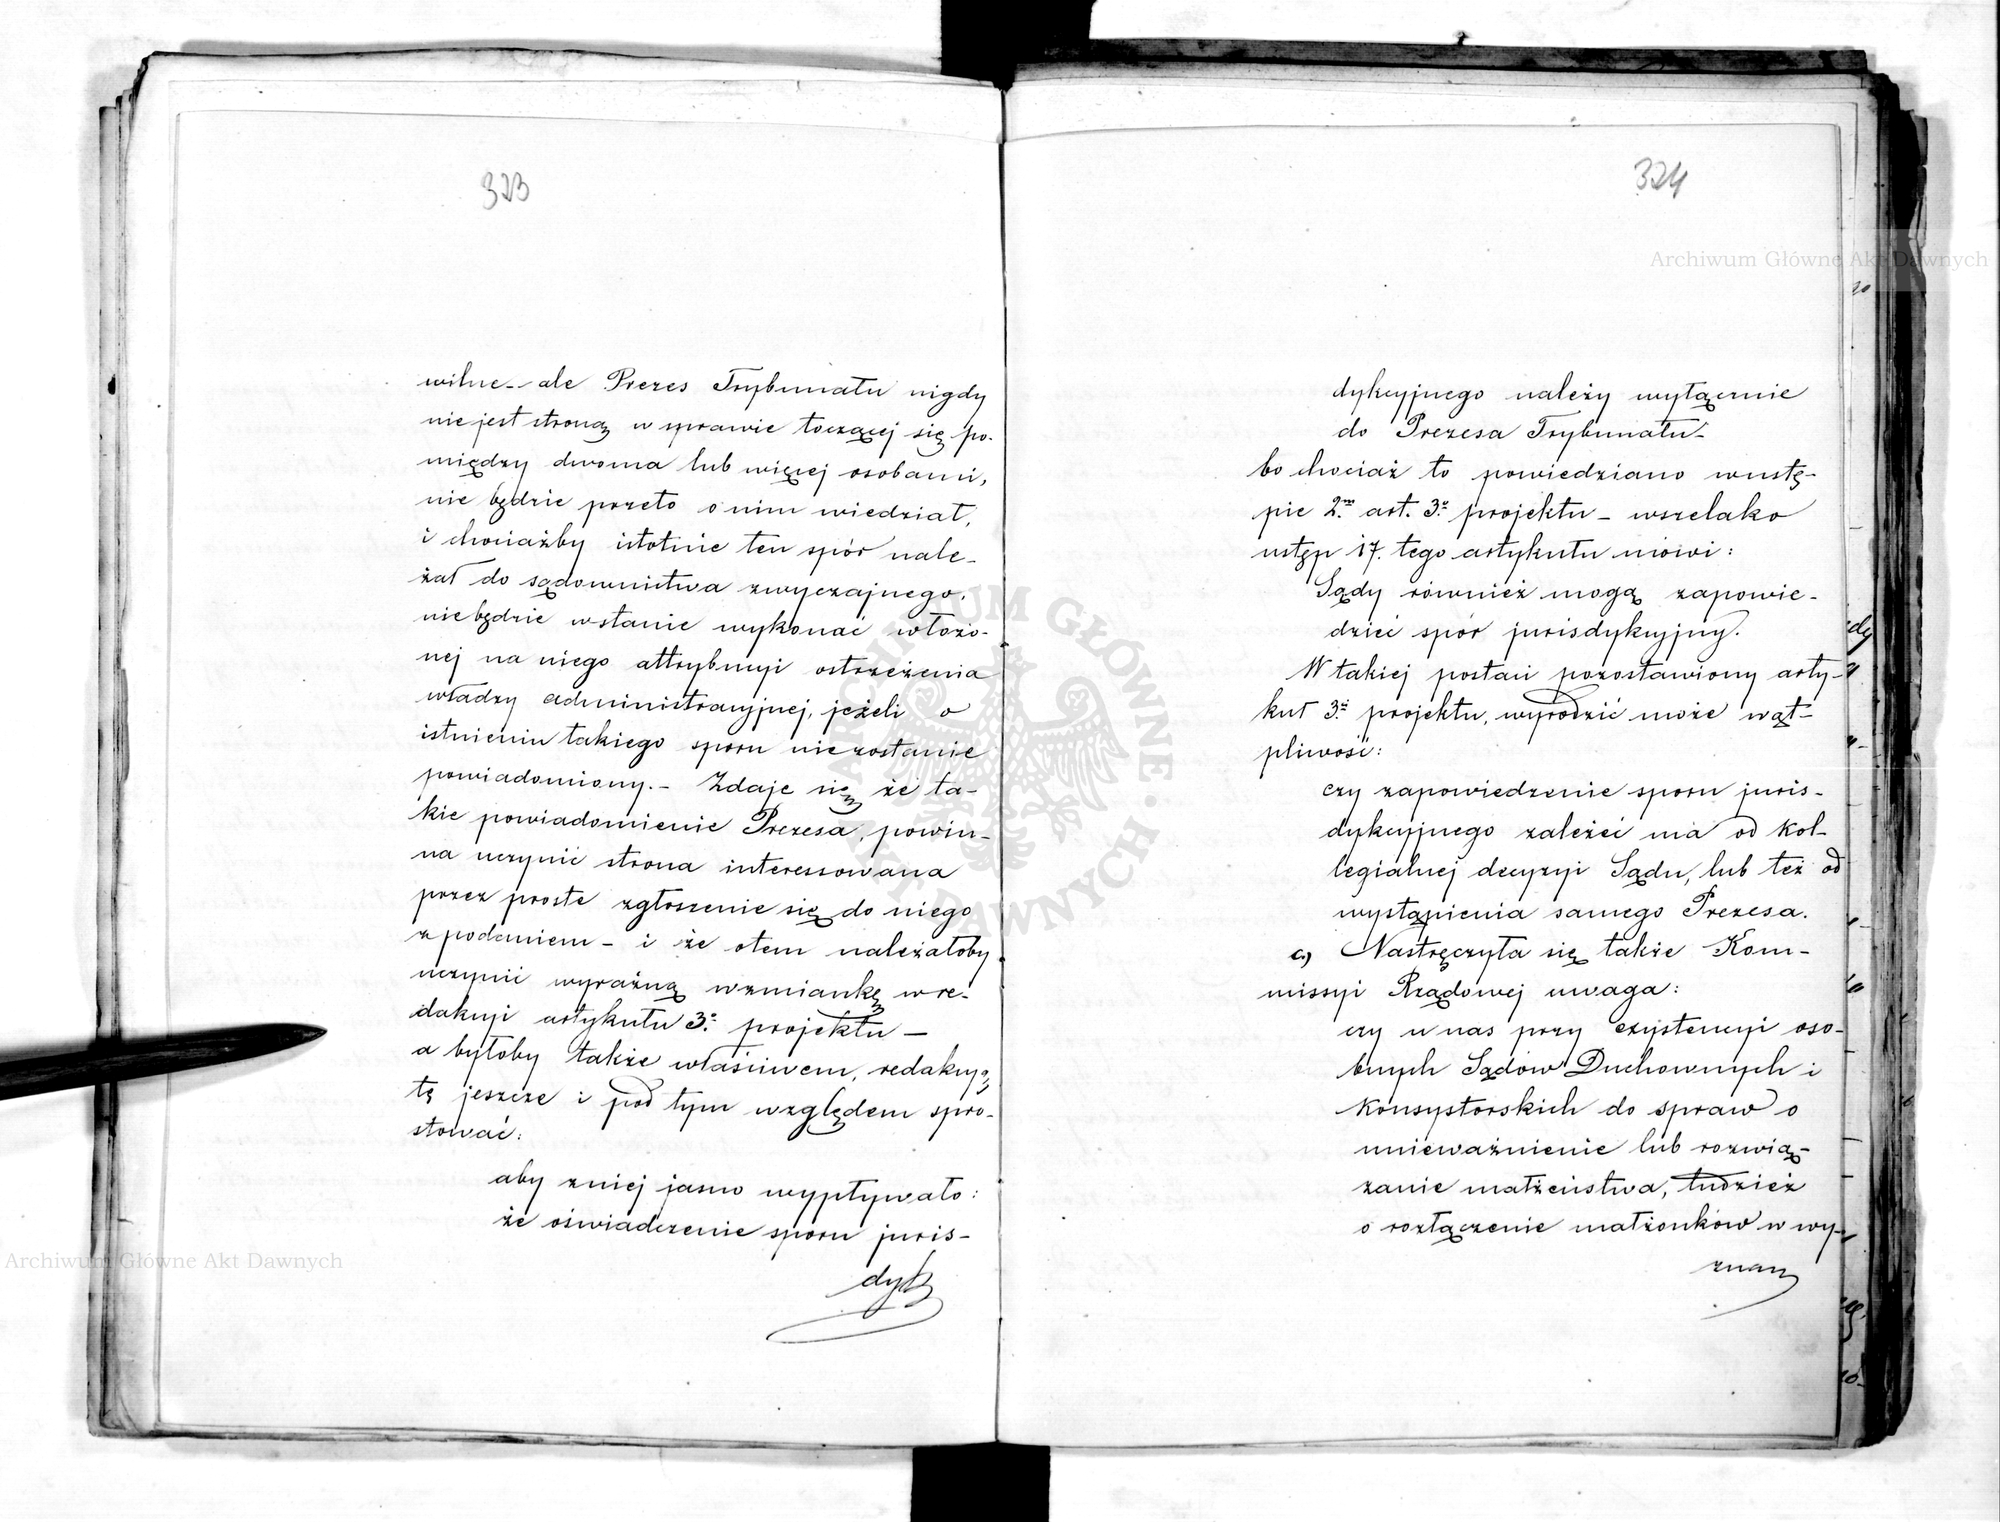 323
wilne - ale Prezes Trybunału nigdy
nie jest stroną w sprawie toczącej się po-
między dwoma lub więcej osobami,
nie będzie przeto o nim wiedział,
i chociażby istotnie ten spór nale-
żał do sądownictwa zwyczajnego,
nie będzie w stanie wykonać włożo-
nej na niego attrybucyi ostrzeżenia
władzy administracyjnej, jeżeli o
istnieniu takiego sporu nie zostanie
powiadomiony. - Zdaje się że ta-
kie powiadomienie Prezesa, powin-
na uczynić strona interessowana
przez proste zgłoszenie się do niego
z podaniem - i że o tem należałoby
uczynić wyraźną wzmiankę w re-
dakcyi artykułu 3º projektu -
a byłoby także właściwem, redakcyą
tę jeszcze i pod tym względem spro-
stować:
aby z niej jasno wypływało:
że oświadczenie sporu juris-
dyk
324
dykcyjnego należy wyłącznie
do Prezesa Trybunału -
bo chociaż to powiedziano w ustę-
pie 2m art. 3º projektu - wszelako
ustęp 17. tego artykułu mówi:
Sądy również mogą zapowie-
dzieć spór jurisdykcyjny.
W takiej postaci pozostawiony arty-
kuł 3º projektu, wyrodzić może wąt-
pliwość:
czy zapowiedzenie sporu juris-
dykcyjnego zależeć ma od kol-
legialnej decyzyi Sądu, lub też od
wystąpienia samego Prezesa.
c.) Nastręczyła się także Kom-
missyi Rządowej uwaga:
czy u nas przy exystencyi oso-
bnych Sądów Duchownych i
Konsystorskich do spraw o
unieważnienie lub rozwią-
zanie małżeństwa, tudzież
o rozłączenie małżonków w wy-
znan
Archiwum Główne Akt Dawnych
Archiwum Główne Akt Dawnych
ARCHIWUM GŁÓWNE AKT DAWNYCH